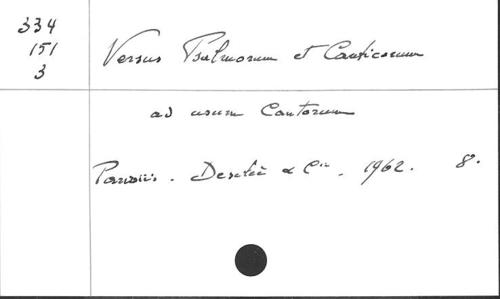 334
151
3
Versus Psalmorum et Canticorum
ad usum Cantorum
Parisiis. Desclée & Cie. 1962. 8°.